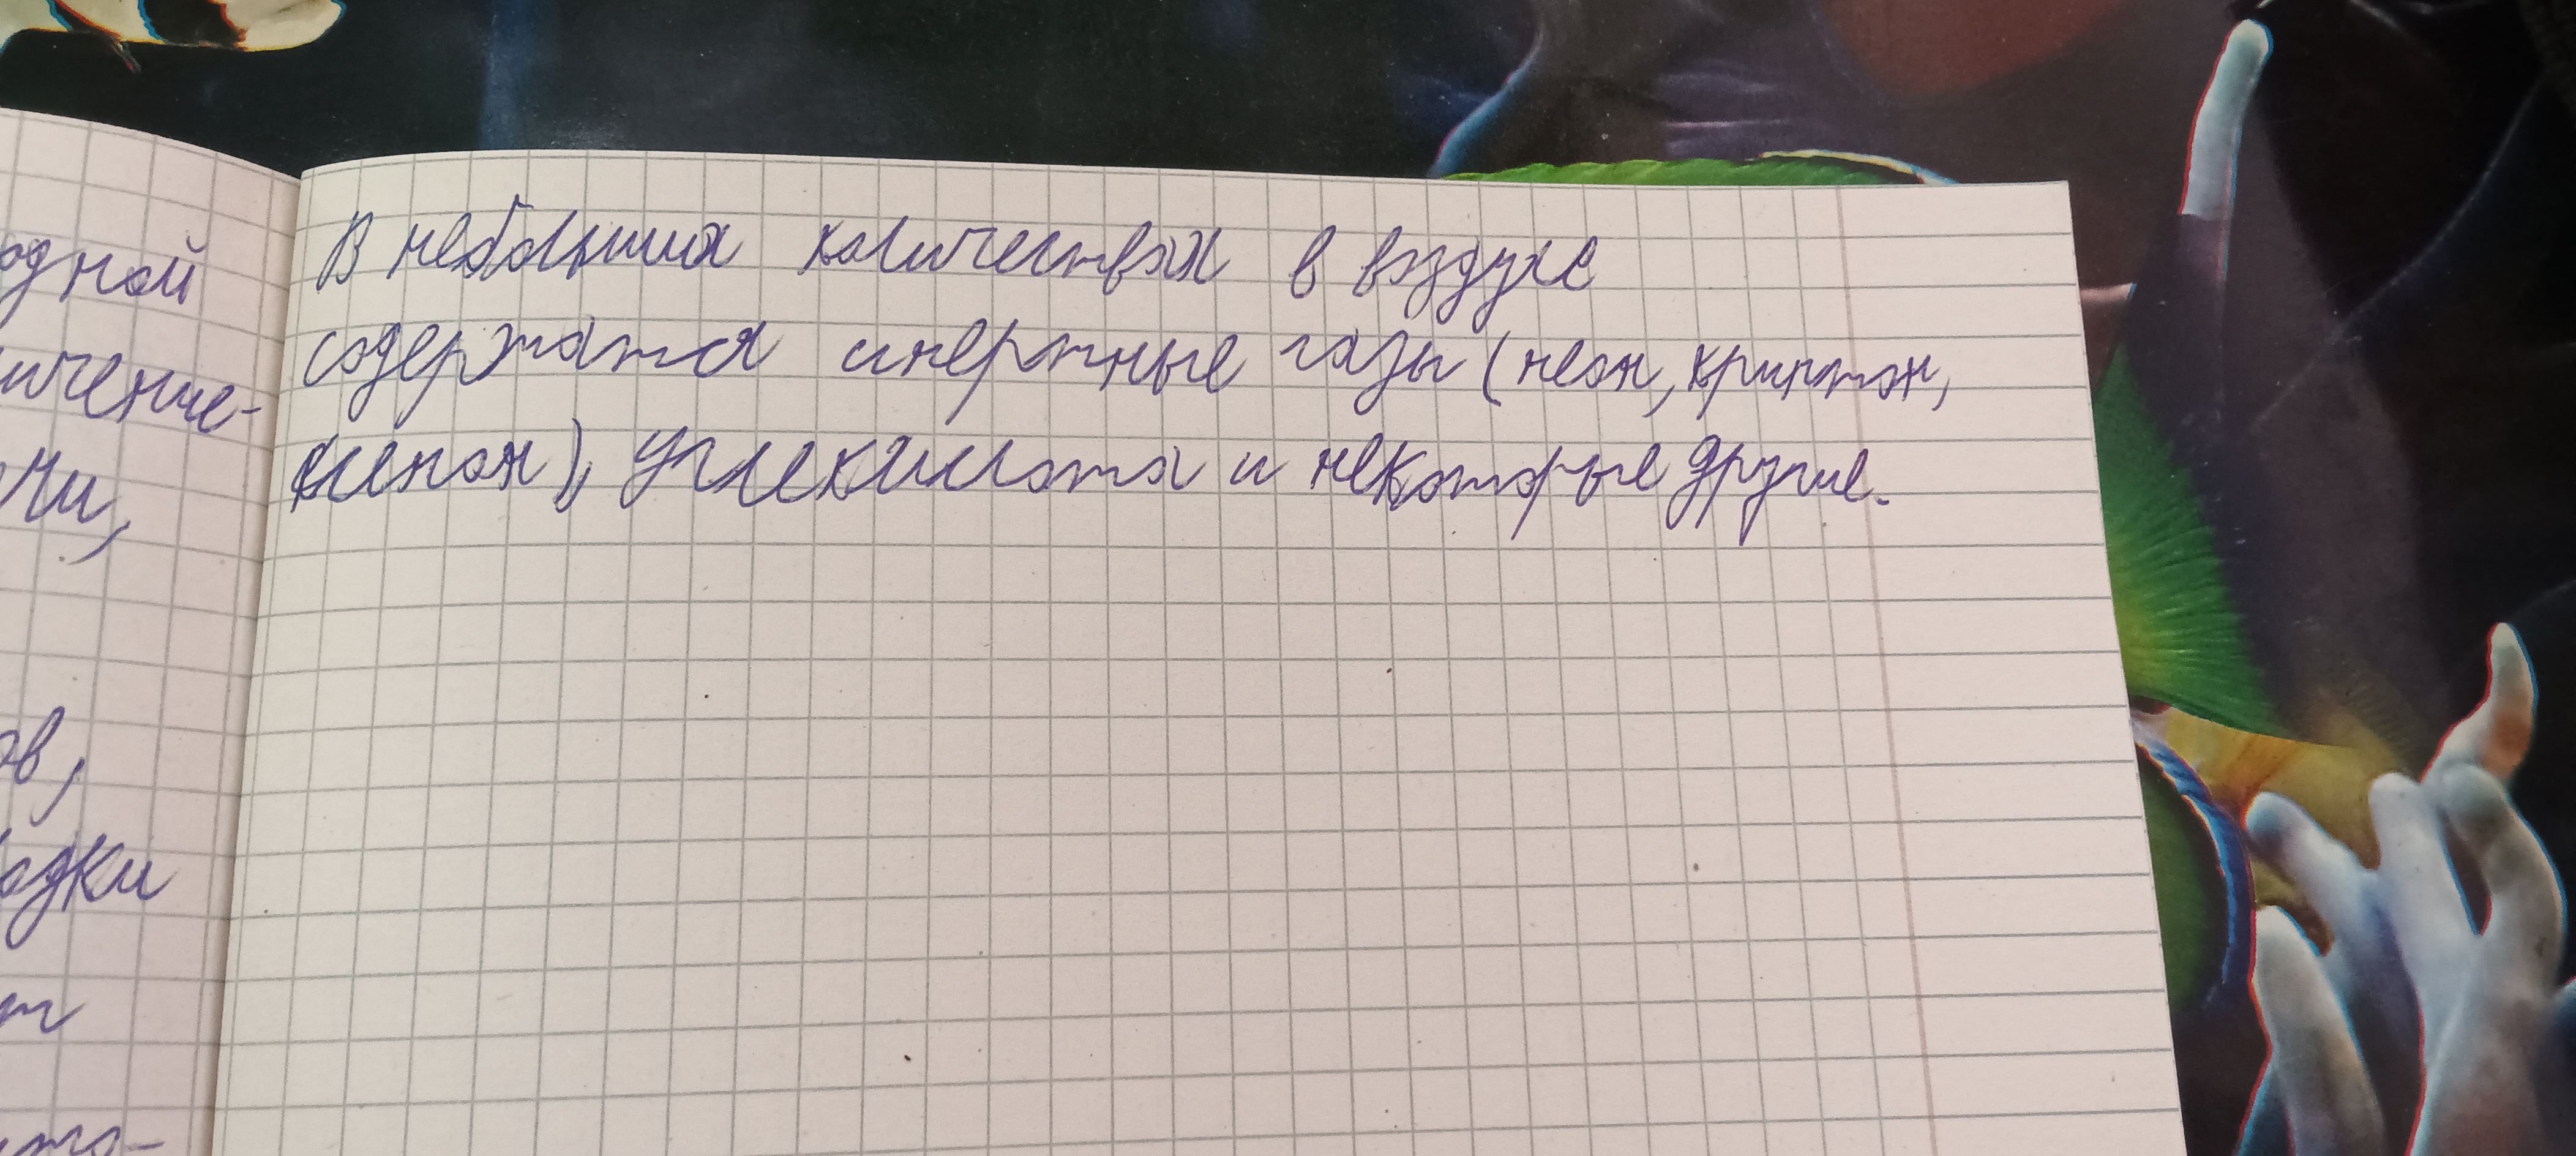 одной
В небольших количествах в воздухе
содержатся инертные газы (неон, криптон,
ксенон), углекислота и некоторые другие.